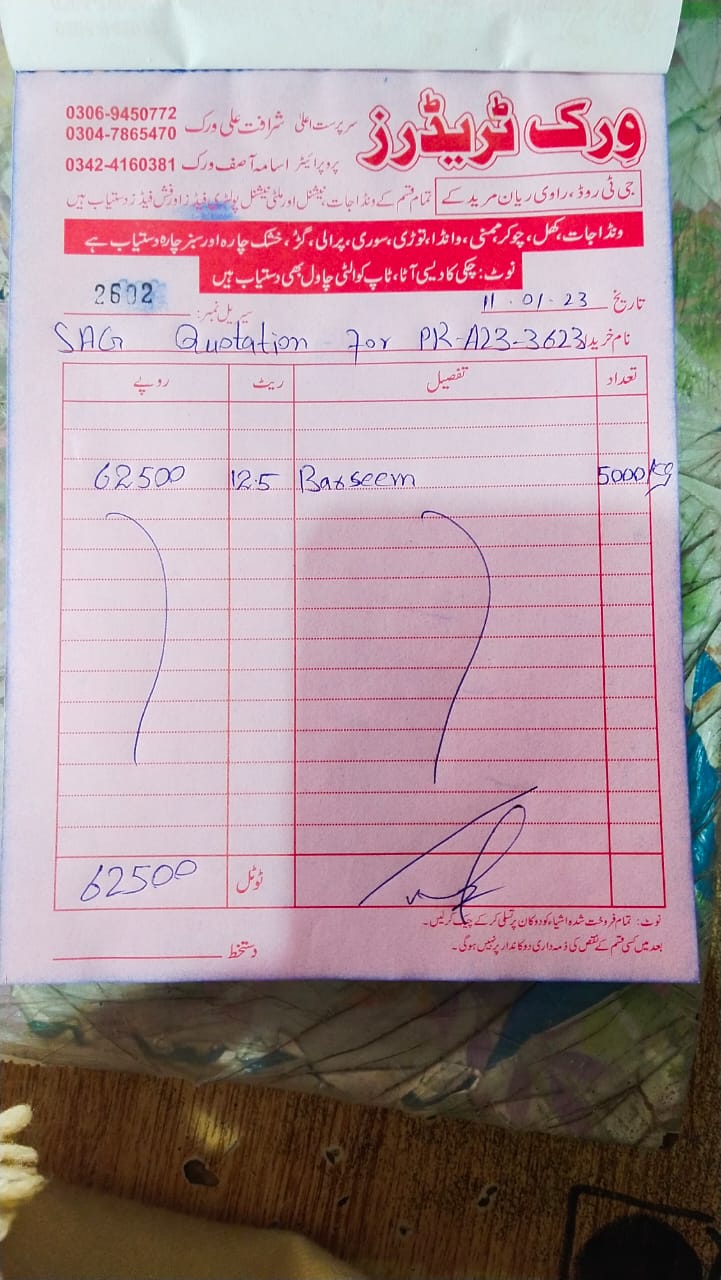 ورک ٹریڈرز
سرپرست اعلیٰ شرافت علی ورک 0306-9450772
0304-7865470
پروپرائیٹر اسامہ آصف ورک 0342-4160381
جی ٹی روڈ، راوی ریان مریدکے
تمام قسم کے ونڈا جات نیشنل اور ملٹی نیشنل پولٹری فیڈز اور فش فیڈز دستیاب ہیں
ونڈا جات، کھل، چوکر، ممنی، وانڈا، توڑی، سوری، پرالی، گڑ، خشک چارہ اور سبز چارہ دستیاب ہے
نوٹ: چکی کا دیسی آٹا، ٹاپ کوالٹی چاول بھی دستیاب ہیں
تاریخ 11-01-23 سیریل نمبر: 2602
نام خریدار SAG Quotation for PR-A23-3623
تعداد تفصیل ریٹ روپے
5000/kg Barseem 12.5 62500
ٹوٹل 62500
نوٹ: تمام فروخت شدہ اشیاء کو دوکان پر تسلی کر کے چیک کر لیں۔
بعد میں کسی قسم کے نقص کی ذمہ داری دوکاندار پر نہیں ہوگی۔
دستخط